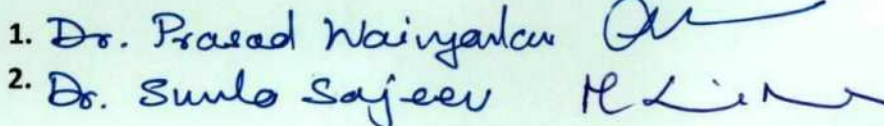 1. Dr. Prasad Waingankar
2. Dr. Sunla Sajeev